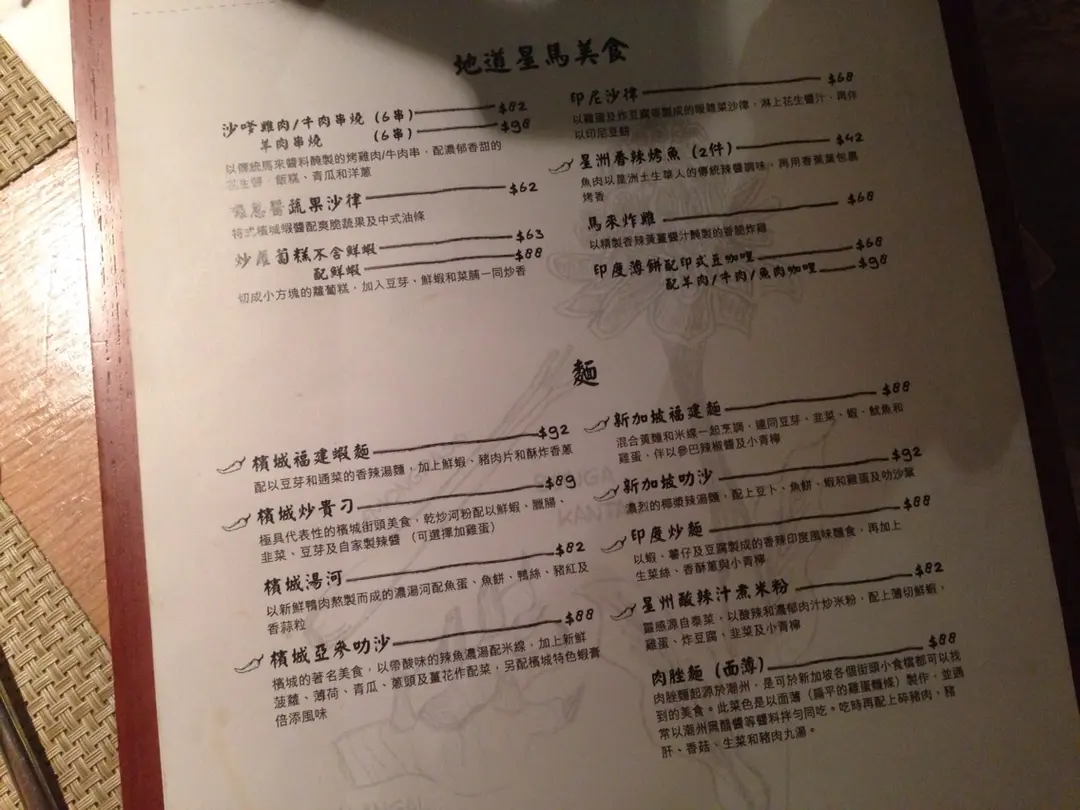 地道星馬美食
沙嗲雞肉/牛肉串燒 (6串) $82
羊肉串燒 (6串) $98
以傳統馬來醬料醃製的烤雞肉/牛肉串，配濃郁香甜的
花生醬、飯糕、青瓜和洋蔥
醬蔬果沙律 $62
檳城蝦醬配爽脆蔬果及中式油條
炒 蔔糕不含鮮蝦 $63
配鮮蝦 $88
切成小方塊的蘿蔔糕，加入豆芽、鮮蝦和菜脯一同炒香
印尼沙律 $68
以雞蛋及炸豆腐等製成的暖雜菜沙律，淋上花生醬汁，再伴
以印尼豆餅
星洲香辣烤魚 (2件) $42
魚肉以星洲土生華人的傳統辣醬調味，再用香蕉葉包裹
烤香
馬來炸雞 $68
以精製香辣黃薑醬汁醃製的香脆炸雞
印度薄餅配印式豆咖哩 $68
配羊肉/牛肉/魚肉咖哩 $98
麵
檳城福建蝦麵 $92
配以豆芽和通菜的香辣湯麵，加上鮮蝦、豬肉片和酥炸香蔥
檳城炒貴刁 $89
極具代表性的檳城街頭美食，乾炒河粉配以鮮蝦、臘腸、
韭菜、豆芽及自家製辣醬 (可選擇加雞蛋)
檳城湯河 $82
以新鮮鴨肉熬製而成的濃湯河配魚蛋、魚餅、鴨絲、豬紅及
香蒜粒
檳城亞參叻沙 $88
檳城的著名美食，以帶酸味的辣魚濃湯配米線，加上新鮮
菠蘿、薄荷、青瓜、蔥頭及薑花作配菜，另配檳城特色蝦膏
倍添風味
新加坡福建麵 $88
混合黃麵和米線一起烹調，連同豆芽、韭菜、蝦、魷魚和
雞蛋，伴以參巴辣椒醬及小青檸
新加坡叻沙 $92
濃烈的椰漿辣湯麵，配上豆卜、魚餅、蝦和雞蛋及叻沙葉
印度炒麵 $88
以蝦、薯仔及豆腐製成的香辣印度風味麵食，再加上
生菜絲、香酥蔥與小青檸
星州酸辣汁煮米粉 $82
靈感源自泰菜，以酸辣和濃郁肉汁炒米粉，配上薄切鮮蝦，
雞蛋、炸豆腐、韭菜及小青檸
肉脞麵 (面薄) $88
肉脞麵起源於潮州，是可於新加坡各個街頭小食檔都可以找
到的美食。此菜色是以面薄 (扁平的雞蛋麵條) 製作，並通
常以潮州黑醋醬等醬料拌勻同吃。吃時再配上碎豬肉、豬
肝、香菇、生菜和豬肉丸湯。